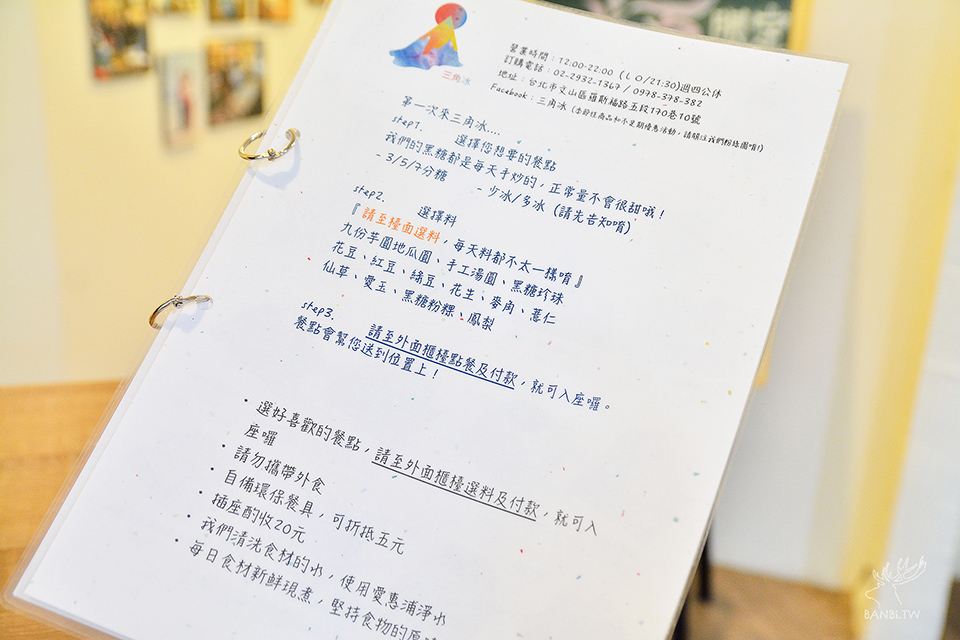 三角冰
營業時間：12:00-22:00 (LO/21:30)週四公休
訂購電話：02-2932-1367 / 0978-378-382
地址：台北市文山區羅斯福路五段170巷10號
Facebook：三角冰 (季節性商品和不定期優惠活動，請關注我們粉絲團唷!)
第一次來三角冰....
step1. 選擇您想要的餐點
我們的黑糖都是每天手炒的，正常量不會很甜哦！
- 3/5/7分糖 - 少冰/多冰 (請先告知唷)
step2. 選擇料
『請至檯面選料，每天料都不太一樣唷』
九份芋圓地瓜圓、手工湯圓、黑糖珍珠
花豆、紅豆、綠豆、花生、麥角、薏仁
仙草、愛玉、黑糖粉粿、鳳梨
step3. 請至外面櫃檯點餐及付款，就可入座囉。
餐點會幫您送到位置上！
• 選好喜歡的餐點，請至外面櫃檯選料及付款，就可入
座囉
• 請勿攜帶外食
• 自備環保餐具，可折抵五元
• 插座酌收20元
• 我們清洗食材的水，使用愛惠浦淨水
• 每日食材新鮮現煮，堅持食物的原
BANBI.TW